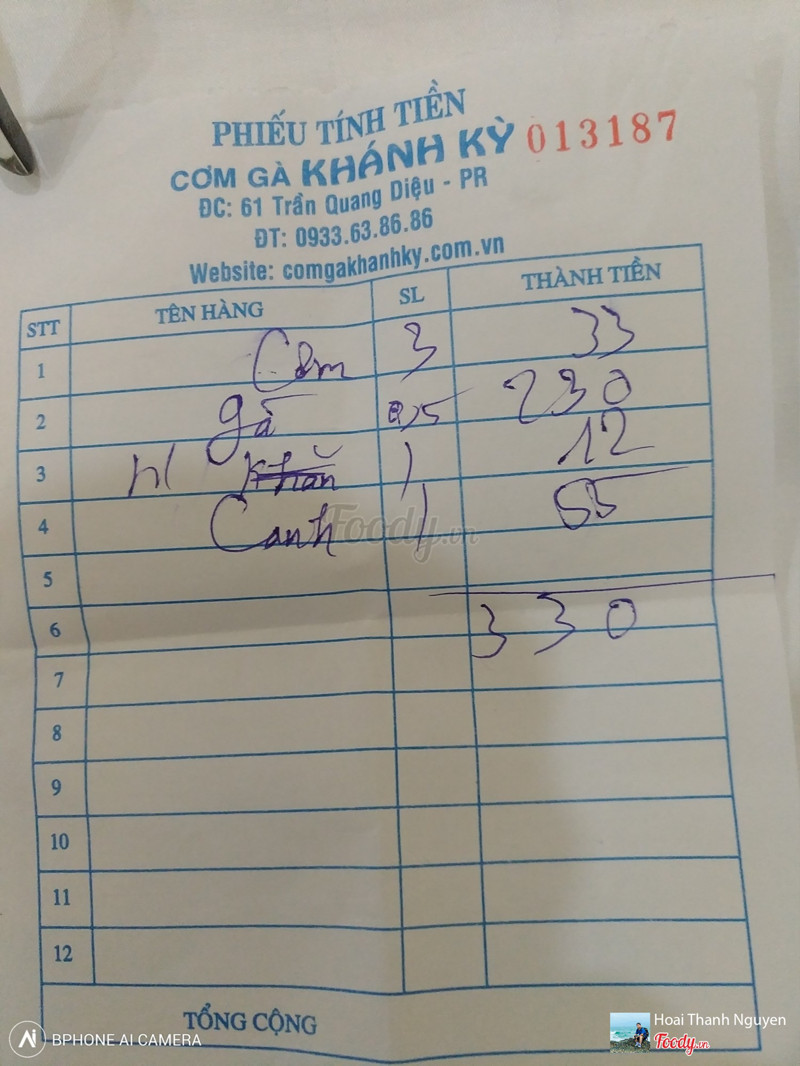 PHIẾU TÍNH TIỀN
CƠM GÀ KHÁNH KỲ 013187
ĐC: 61 Trần Quang Diệu - PR
ĐT: 0933.63.86.86
Website: comgakhanhky.com.vn
STT TÊN HÀNG SL THÀNH TIỀN
1 Cơm 3 33
2 gà 0,5 230
3 khăn 1 12
4 Canh 1 55
5
6 330
7
8
9
10
11
12
TỔNG CỘNG
Foody.vn
BPHONE AI CAMERA
Hoai Thanh Nguyen
Foody.vn